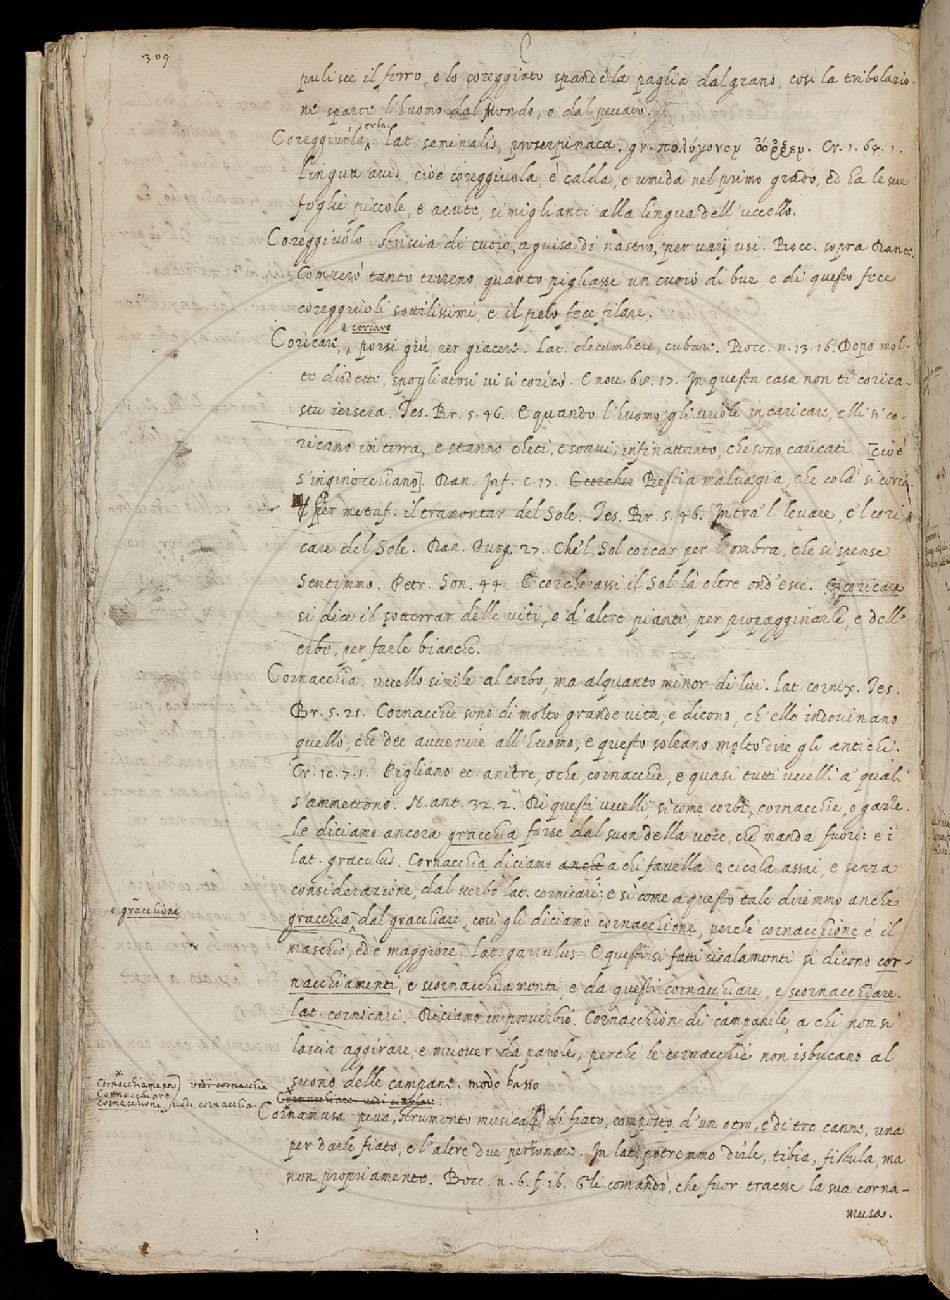 309
C
pulisce il ferro, e lo coreggiato spande la paglia dal grano, così la tribolazio-
ne sparte l'huomo dal mondo, o dal peccato.
Coreggiuola, erba. lat. seminalis, proserpinaca. gr. πολύγονον Cr. 1.
lingua avis, cioè coreggiuola, è calda, e umida nel primo grado, ed ha le sue
foglie piccole, e acute, simiglianti alla lingua dell'uccello.
Coreggiuolo. Striscia di cuoio, a guisa di nastro, per varj usi. Bocc. sopra Dante.
Comperò tanto terreno, quanto pigliasse un cuoio di bue, e di questo fece
coreggiuoli sottilissimi, e il pelo fece filare.
Coricare, e corcare porsi giù per giacere. Lat. decumbere, cubare. Bocc. n. 13. 16. Dopo mol-
te disdette, spogliatosi vi si coricò. E nov. 68. 17. In questa casa non ti corica-
stu iersera. Tes. Br. 5. 46. E quando l'huomo gli vuole incaricare, elli si co-
ricano in terra, e stanno cheti, e soavi, infinattanto, che sono caricati [cioè
s'inginocchiano]. Dan. Inf. c. 17. Bestia malvagia, che colà si corca.
per metaf. il tramontar del Sole. Tes. Br. 5. 46. Intra 'l levare, e 'l cori
care del Sole. Dan. Purg. 27. Che 'l Sol corcar per l'ombra, che si spense
Sentimmo. Petr. Son. 44. E corcherassi il Sol là oltre ond'esce. E coricare
si dice il sotterrar delle viti, o d'altre piante, per propagginarle, e dell'
erbe, per farle bianche.
Cornacchia, uccello simile al corbo, ma alquanto minor di lui. Lat. cornix. Tes.
Br. 5. 21. Cornacchie sono di molto grande vita, e dicono, ch'elle indovinano
quello, che dee avvenire all'huomo, e questo soleano molto dire gli antichi.
Cr. 10. 7. 1. Pigliano ec. anitre, oche, cornacchie, e quasi tutti uccelli a' quali
s'ammettono. N. ant. 32. 2. Di questi uccelli sì come corbi, cornacchie, o gazze.
Le diciamo ancora gracchia forse dal suon della voce, che manda fuori: e i
lat. graculus. Cornacchia diciamo anche a chi favella e cicala assai, e senza
considerazione, dal verbo lat. cornicari: e sì come a questo tale diremmo anche
e gracchione
gracchia dal gracchiare, così gli diciamo cornacchione, perchè cornacchione è il
maschio, ed è maggiore. Lat. garrulus. E questi sì fatti cicalamenti si dicono cor-
nacchiamenti, e scornacchiamenti, e da questi cornacchiare, e scornacchiare.
lat. cornicari. Diciamo in proverbio. Cornacchion di campanile, a chi non si
lascia aggirare, e muover da parole, perchè le cornacchie non isbucano al
suono delle campane. modo basso
Cornacchiamento vedi cornacchia
Cornacchiare
Cornacchione, vedi cornacchia.
Cornamusa piva, strumento musicale di fiato, composto d'un otro, e di tre canne, una
per darle fiato, e l'altre due per sonare. In lat. potremmo dirle, tibia, fistula, ma
non propriamente. Bocc. n. 6. f. 16. Gli comandò, che fuor traesse la sua corna-
musa.